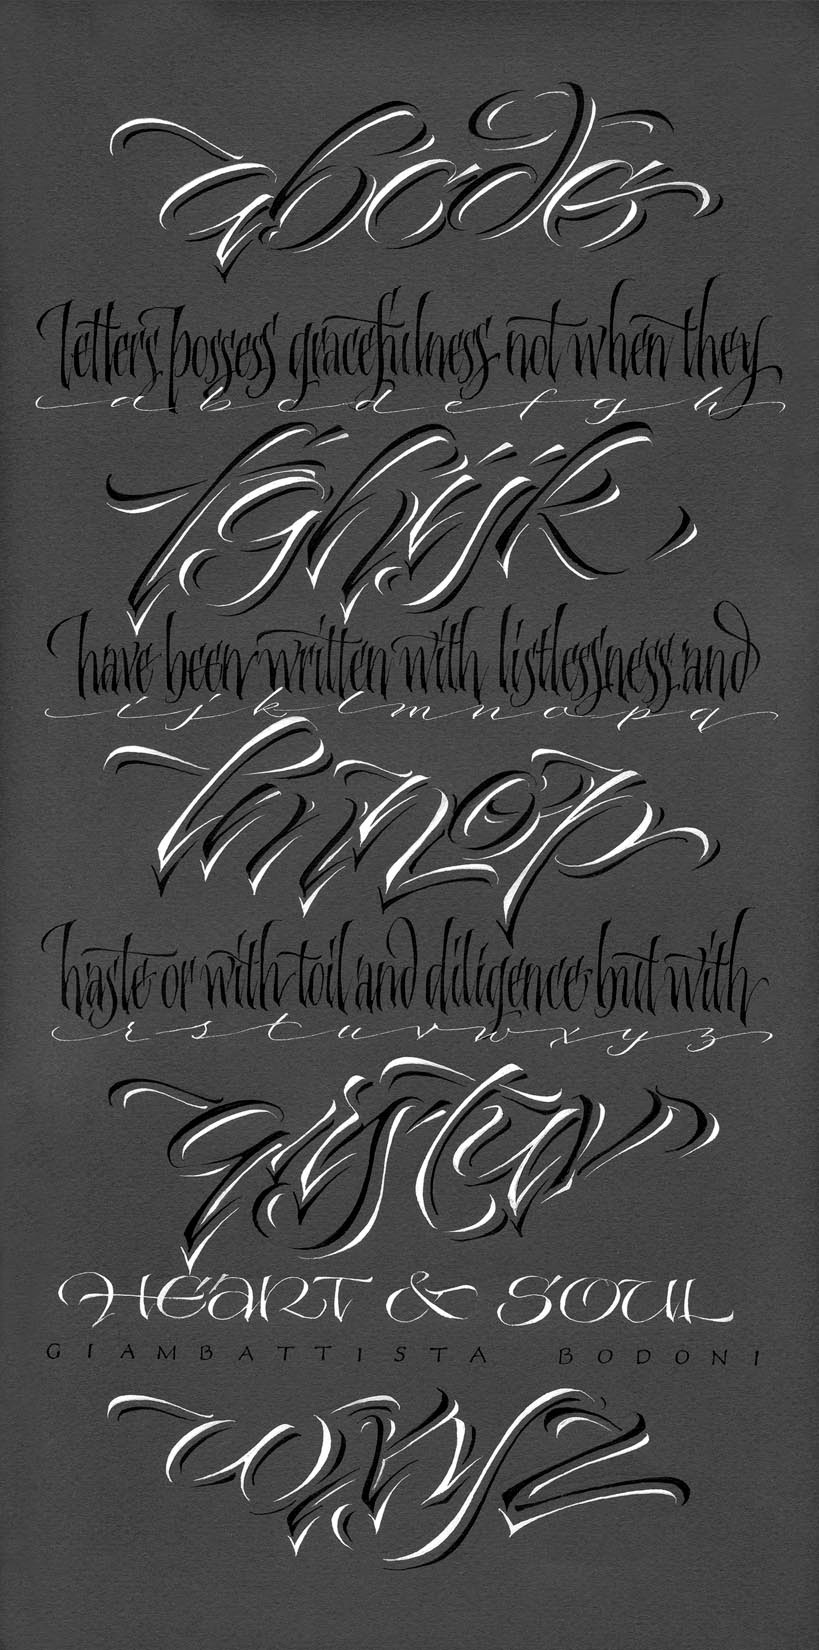 abcde
letters possess gracefulness not when they
a b c d e f g h
fghijk
have been written with listlessness and
i j k l m n o p q
lmnop
haste or with toil and diligence but with
r s t u v w x y z
qrstuv
HEART & SOUL
GIAMBATTISTA BODONI
wxyz